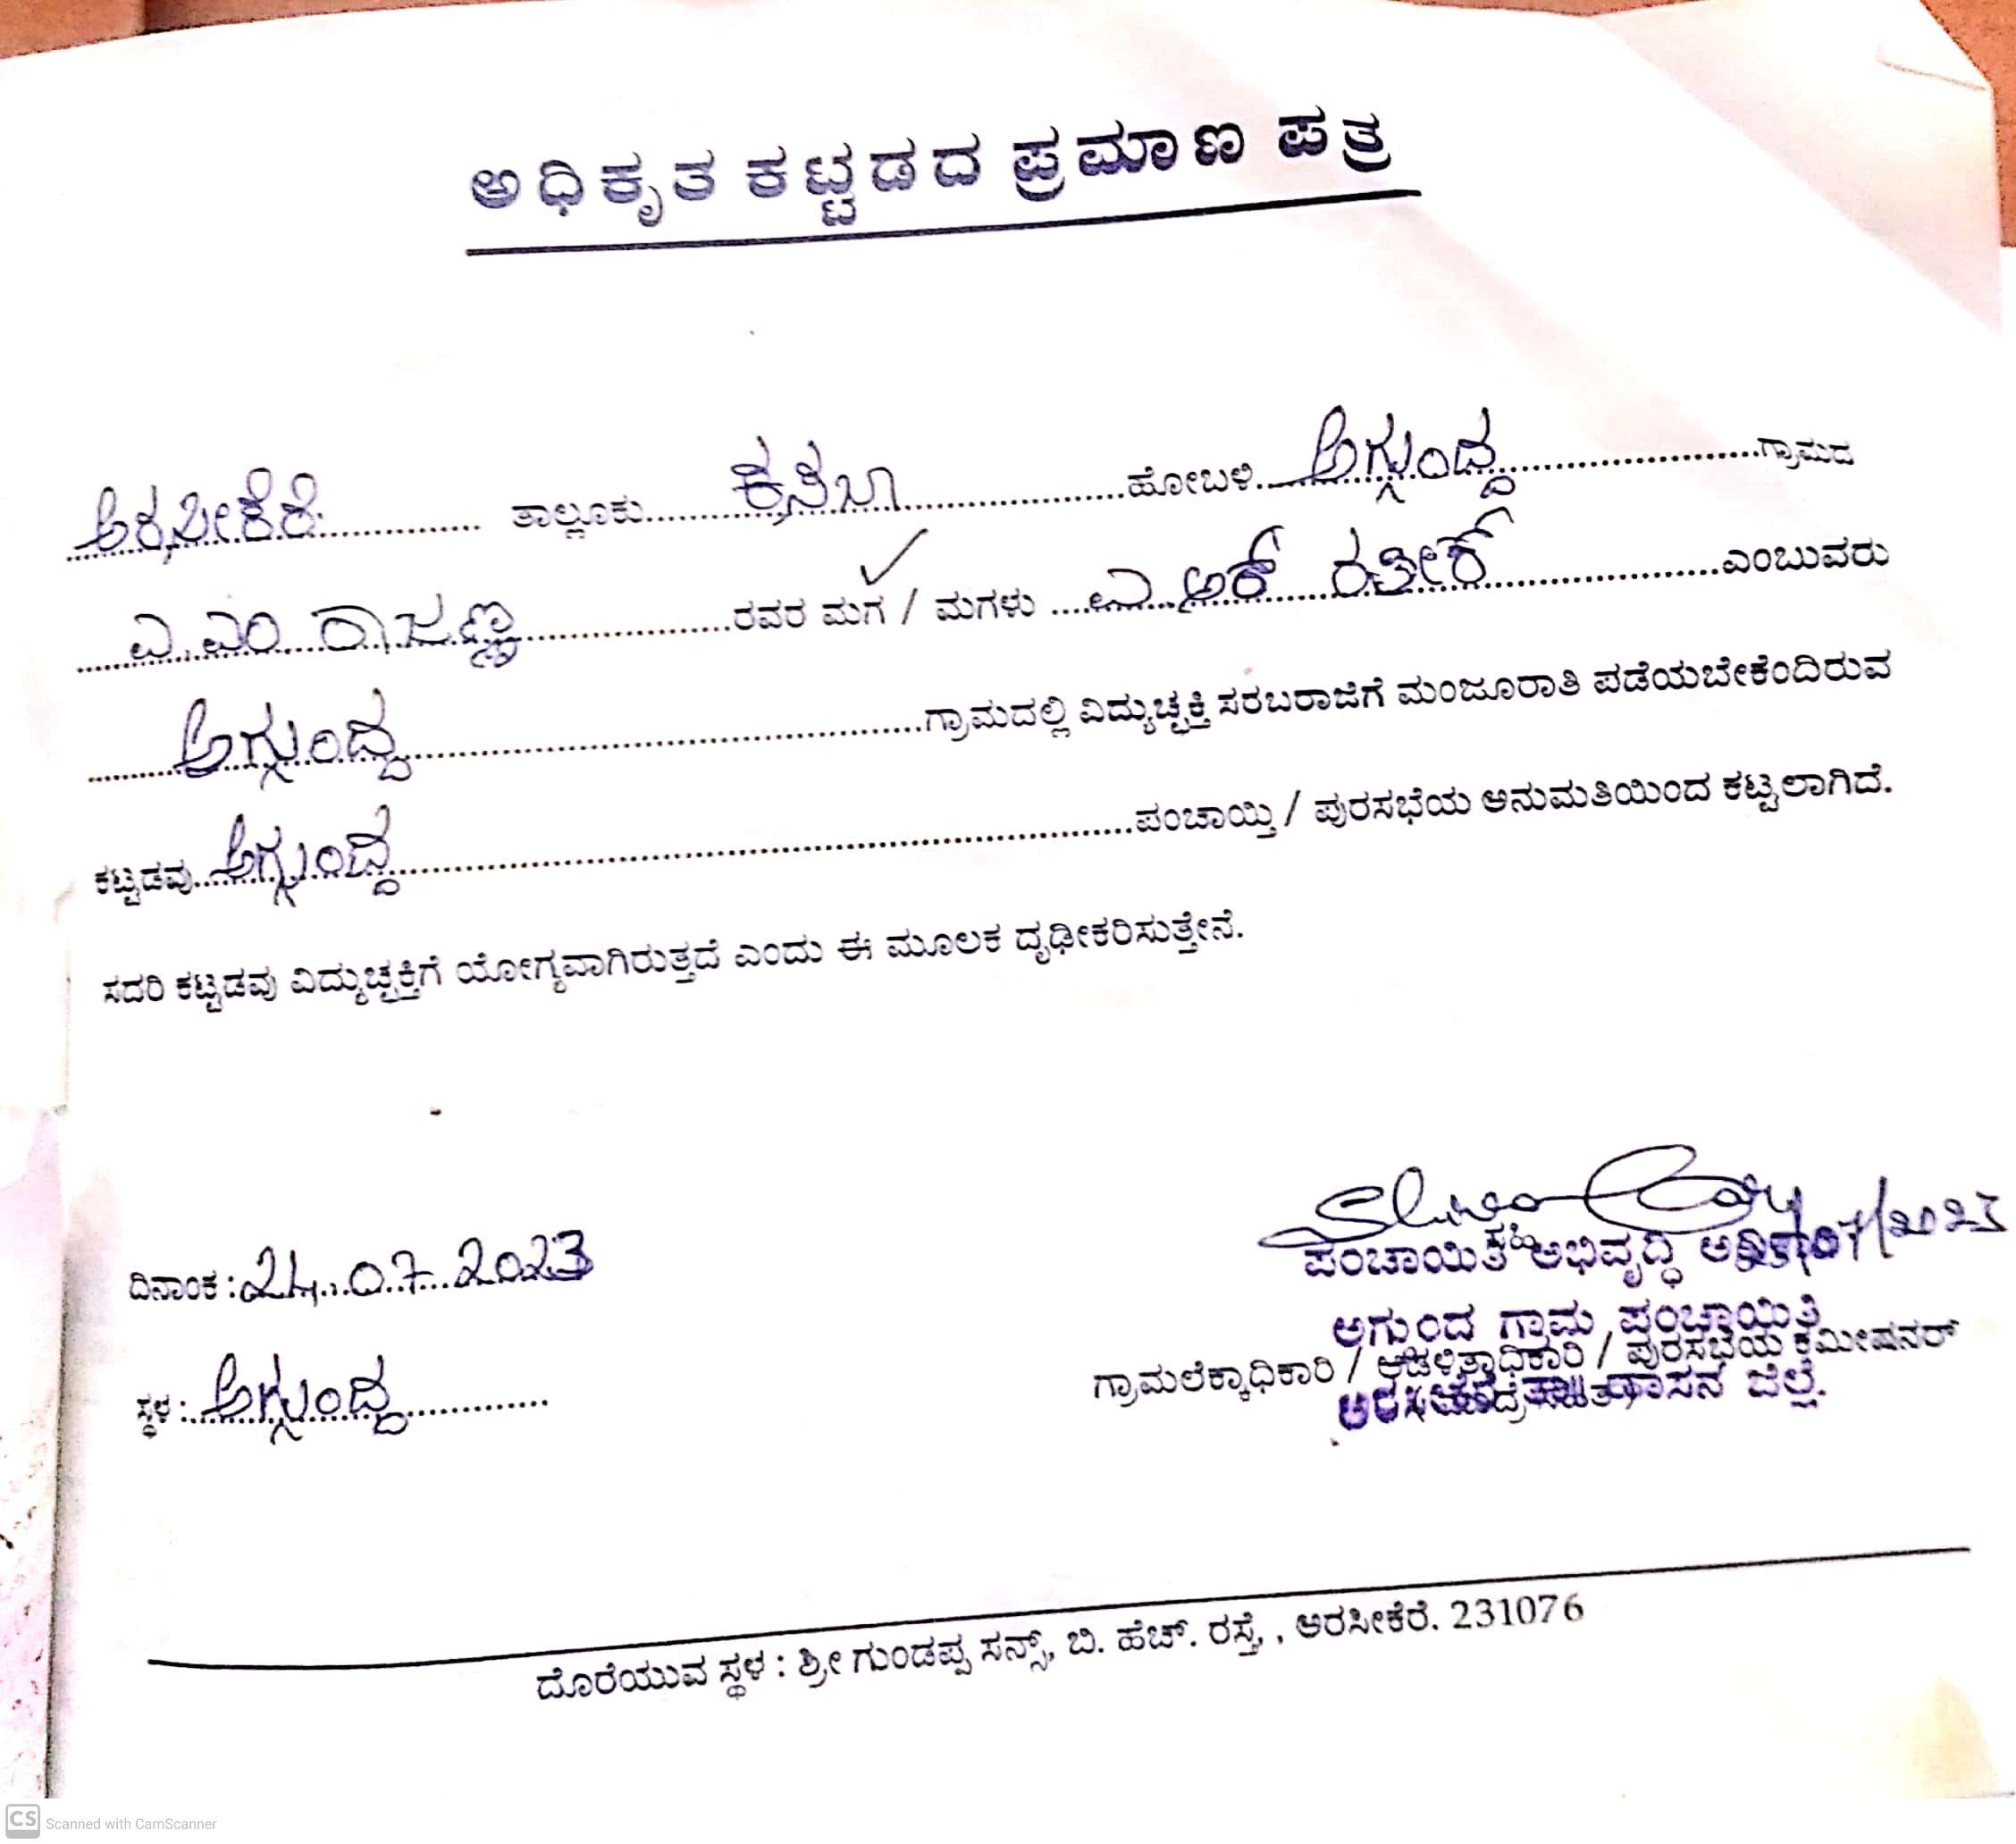 ಅಧಿಕೃತ ಕಟ್ಟಡದ ಪ್ರಮಾಣ ಪತ್ರ
ಅರಸೀಕೆರೆ ತಾಲ್ಲೂಕು ಕಸಬಾ ಹೋಬಳಿ ಅಗ್ಗುಂದ ಗ್ರಾಮದ
ಎ.ಎಂ ರಾಜಣ್ಣ ರವರ ಮಗ / ಮಗಳು ಎ.ಆರ್ ಎಂಬುವರು
ಅಗ್ಗುಂದ ಗ್ರಾಮದಲ್ಲಿ ವಿದ್ಯುಚ್ಛಕ್ತಿ ಸರಬರಾಜಿಗೆ ಮಂಜೂರಾತಿ ಪಡೆಯಬೇಕೆಂದಿರುವ
ಕಟ್ಟಡವು ಅಗ್ಗುಂದ ಪಂಚಾಯ್ತಿ / ಪುರಸಭೆಯ ಅನುಮತಿಯಿಂದ ಕಟ್ಟಲಾಗಿದೆ.
ಸದರಿ ಕಟ್ಟಡವು ವಿದ್ಯುಚ್ಛಕ್ತಿಗೆ ಯೋಗ್ಯವಾಗಿರುತ್ತದೆ ಎಂದು ಈ ಮೂಲಕ ದೃಢೀಕರಿಸುತ್ತೇನೆ.
ಸಹಿ
ಪಂಚಾಯಿತಿ ಅಭಿವೃದ್ಧಿ /07/2023
ದಿನಾಂಕ : 24.07.2023
ಅಗ್ಗುಂದ ಗ್ರಾಮ ಪಂಚಾಯಿತಿ
ಗ್ರಾಮಲೆಕ್ಕಾಧಿಕಾರಿ / ಆಡಳಿತ್ತಾಧಿಕಾರಿ / ಪುರಸಭೆಯ ಕಮೀಷನರ್
ಸ್ಥಳ : ಅಗ್ಗುಂದ
ಹಾಸನ ಜಿಲ್ಲೆ.
ದೊರೆಯುವ ಸ್ಥಳ : ಶ್ರೀ ಗುಂಡಪ್ಪ ಸನ್ಸ್, ಬಿ. ಹೆಚ್. ರಸ್ತೆ, , ಅರಸೀಕೆರೆ. 231076
CS Scanned with CamScanner